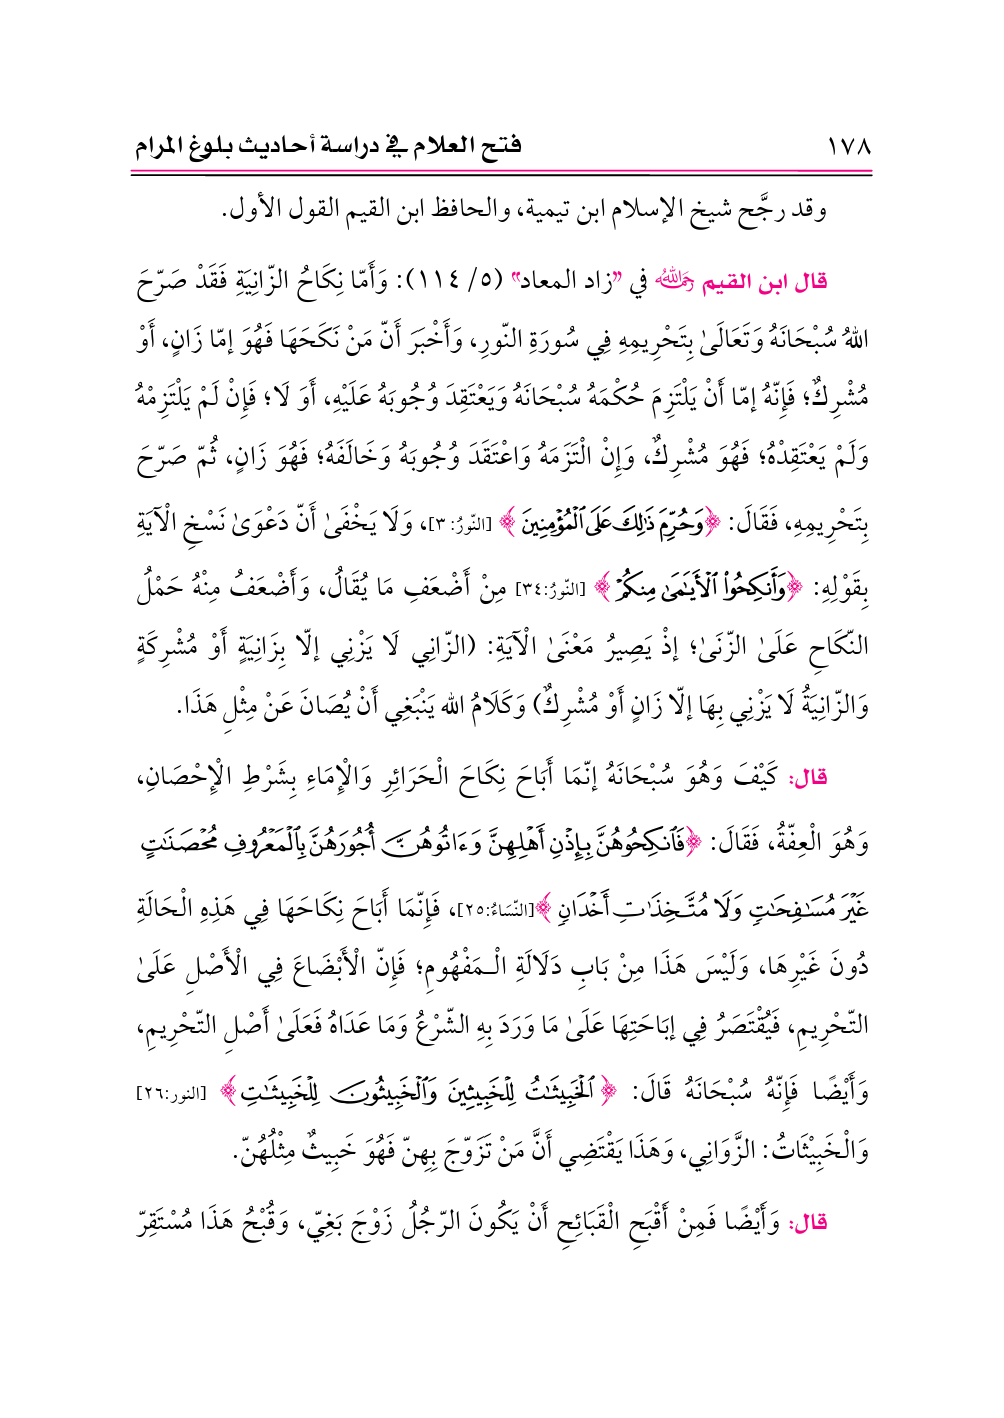 ١٧٨ فتح العلام في دراسة أحاديث بلوغ المرام
وقد رجَّح شيخ الإسلام ابن تيمية، والحافظ ابن القيم القول الأول.
قال ابن القيم رَحِمَهُ اللهُ في "زاد المعاد" (٥/ ١١٤): وَأَمّا نِكَاحُ الزّانِيَةِ فَقَدْ صَرّحَ
اللهُ سُبْحَانَهُ وَتَعَالَىٰ بِتَحْرِيمِهِ فِي سُورَةِ النّورِ، وَأَخْبَرَ أَنّ مَنْ نَكَحَهَا فَهُوَ إمّا زَانٍ، أَوْ
مُشْرِكٌ؛ فَإِنّهُ إمّا أَنْ يَلْتَزِمَ حُكْمَهُ سُبْحَانَهُ وَيَعْتَقِدَ وُجُوبَهُ عَلَيْهِ، أَوَ لَا؛ فَإِنْ لَمْ يَلْتَزِمْهُ
وَلَمْ يَعْتَقِدْهُ؛ فَهُوَ مُشْرِكٌ، وَإِنْ الْتَزَمَهُ وَاعْتَقَدَ وُجُوبَهُ وَخَالَفَهُ؛ فَهُوَ زَانٍ، ثُمّ صَرّحَ
بِتَحْرِيمِهِ، فَقَالَ: ﴿وَحُرِّمَ ذَٰلِكَ عَلَى ٱلْمُؤْمِنِينَ﴾ [النّورُ: ٣]، وَلَا يَخْفَىٰ أَنّ دَعْوَىٰ نَسْخِ الْآيَةِ
بِقَوْلِهِ: ﴿وَأَنكِحُوا۟ ٱلْأَيَٰمَىٰ مِنكُمْ﴾ [النّورُ:٣٤] مِنْ أَضْعَفِ مَا يُقَالُ، وَأَضْعَفُ مِنْهُ حَمْلُ
النّكَاحِ عَلَىٰ الزّنَىٰ؛ إذْ يَصِيرُ مَعْنَىٰ الْآيَةِ: (الزّانِي لَا يَزْنِي إلّا بِزَانِيَةٍ أَوْ مُشْرِكَةٍ
وَالزّانِيَةُ لَا يَزْنِي بِهَا إلّا زَانٍ أَوْ مُشْرِكٌ) وَكَلَامُ الله يَنْبَغِي أَنْ يُصَانَ عَنْ مِثْلِ هَذَا.
قال: كَيْفَ وَهُوَ سُبْحَانَهُ إنّمَا أَبَاحَ نِكَاحَ الْحَرَائِرِ وَالْإِمَاءِ بِشَرْطِ الْإِحْصَانِ،
وَهُوَ الْعِفّةُ، فَقَالَ: ﴿فَٱنكِحُوهُنَّ بِإِذْنِ أَهْلِهِنَّ وَءَاتُوهُنَّ أُجُورَهُنَّ بِٱلْمَعْرُوفِ مُحْصَنَٰتٍ
غَيْرَ مُسَٰفِحَٰتٍ وَلَا مُتَّخِذَٰتِ أَخْدَانٍ﴾ [النّسَاءُ:٢٥]، فَإِنّمَا أَبَاحَ نِكَاحَهَا فِي هَذِهِ الْحَالَةِ
دُونَ غَيْرِهَا، وَلَيْسَ هَذَا مِنْ بَابِ دَلَالَةِ الْـمَفْهُومِ؛ فَإِنّ الْأَبْضَاعَ فِي الْأَصْلِ عَلَىٰ
التّحْرِيمِ، فَيُقْتَصَرُ فِي إبَاحَتِهَا عَلَىٰ مَا وَرَدَ بِهِ الشّرْعُ وَمَا عَدَاهُ فَعَلَىٰ أَصْلِ التّحْرِيمِ،
وَأَيْضًا فَإِنّهُ سُبْحَانَهُ قَالَ: ﴿ٱلْخَبِيثَٰتُ لِلْخَبِيثِينَ وَٱلْخَبِيثُونَ لِلْخَبِيثَٰتِ﴾ [النور:٢٦]
وَالْخَبِيْثَاتُ: الزَّوَانِي، وَهَذَا يَقْتَضِي أَنَّ مَنْ تَزَوّجَ بِهِنّ فَهُوَ خَبِيثٌ مِثْلُهُنّ.
قال: وَأَيْضًا فَمِنْ أَقْبَحِ الْقَبَائِحِ أَنْ يَكُونَ الرّجُلُ زَوْجَ بَغِيّ، وَقُبْحُ هَذَا مُسْتَقِرّ